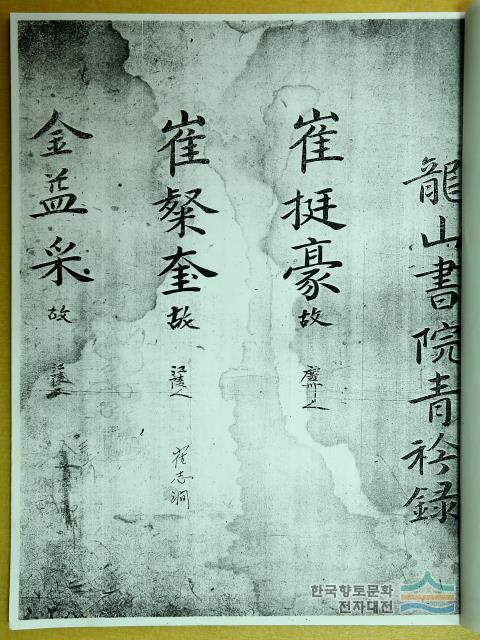 龍山書院青衿録
崔挺豪 故
崔粲奎 故 江陵人 崔志洞
金益采 故 江陵
한국향토문화
전자대전